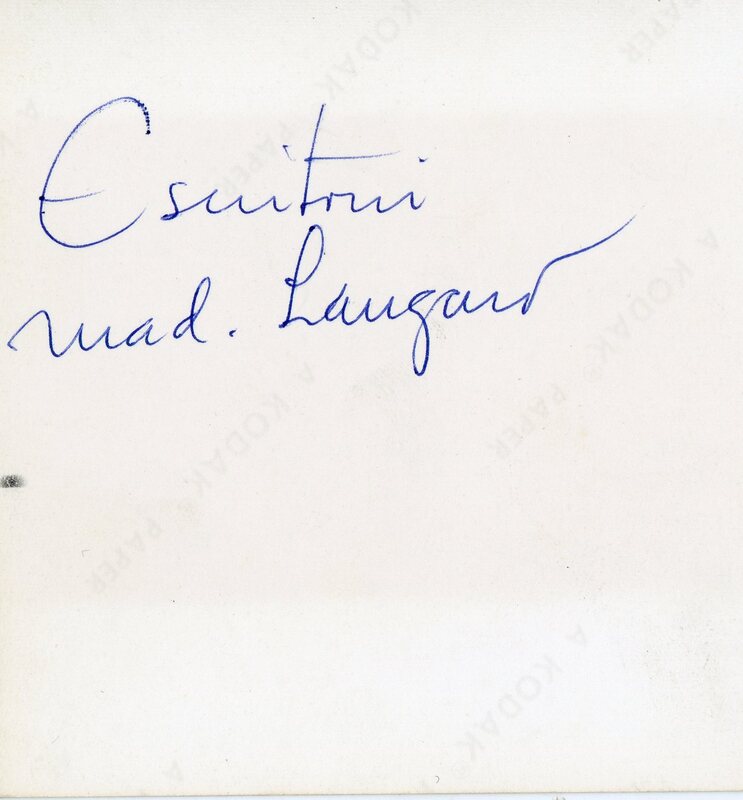 Escritori
mad. Laugard
A KODAK PAPER
A KODAK PAPER
A KODAK PAPER
A KODAK PAPER